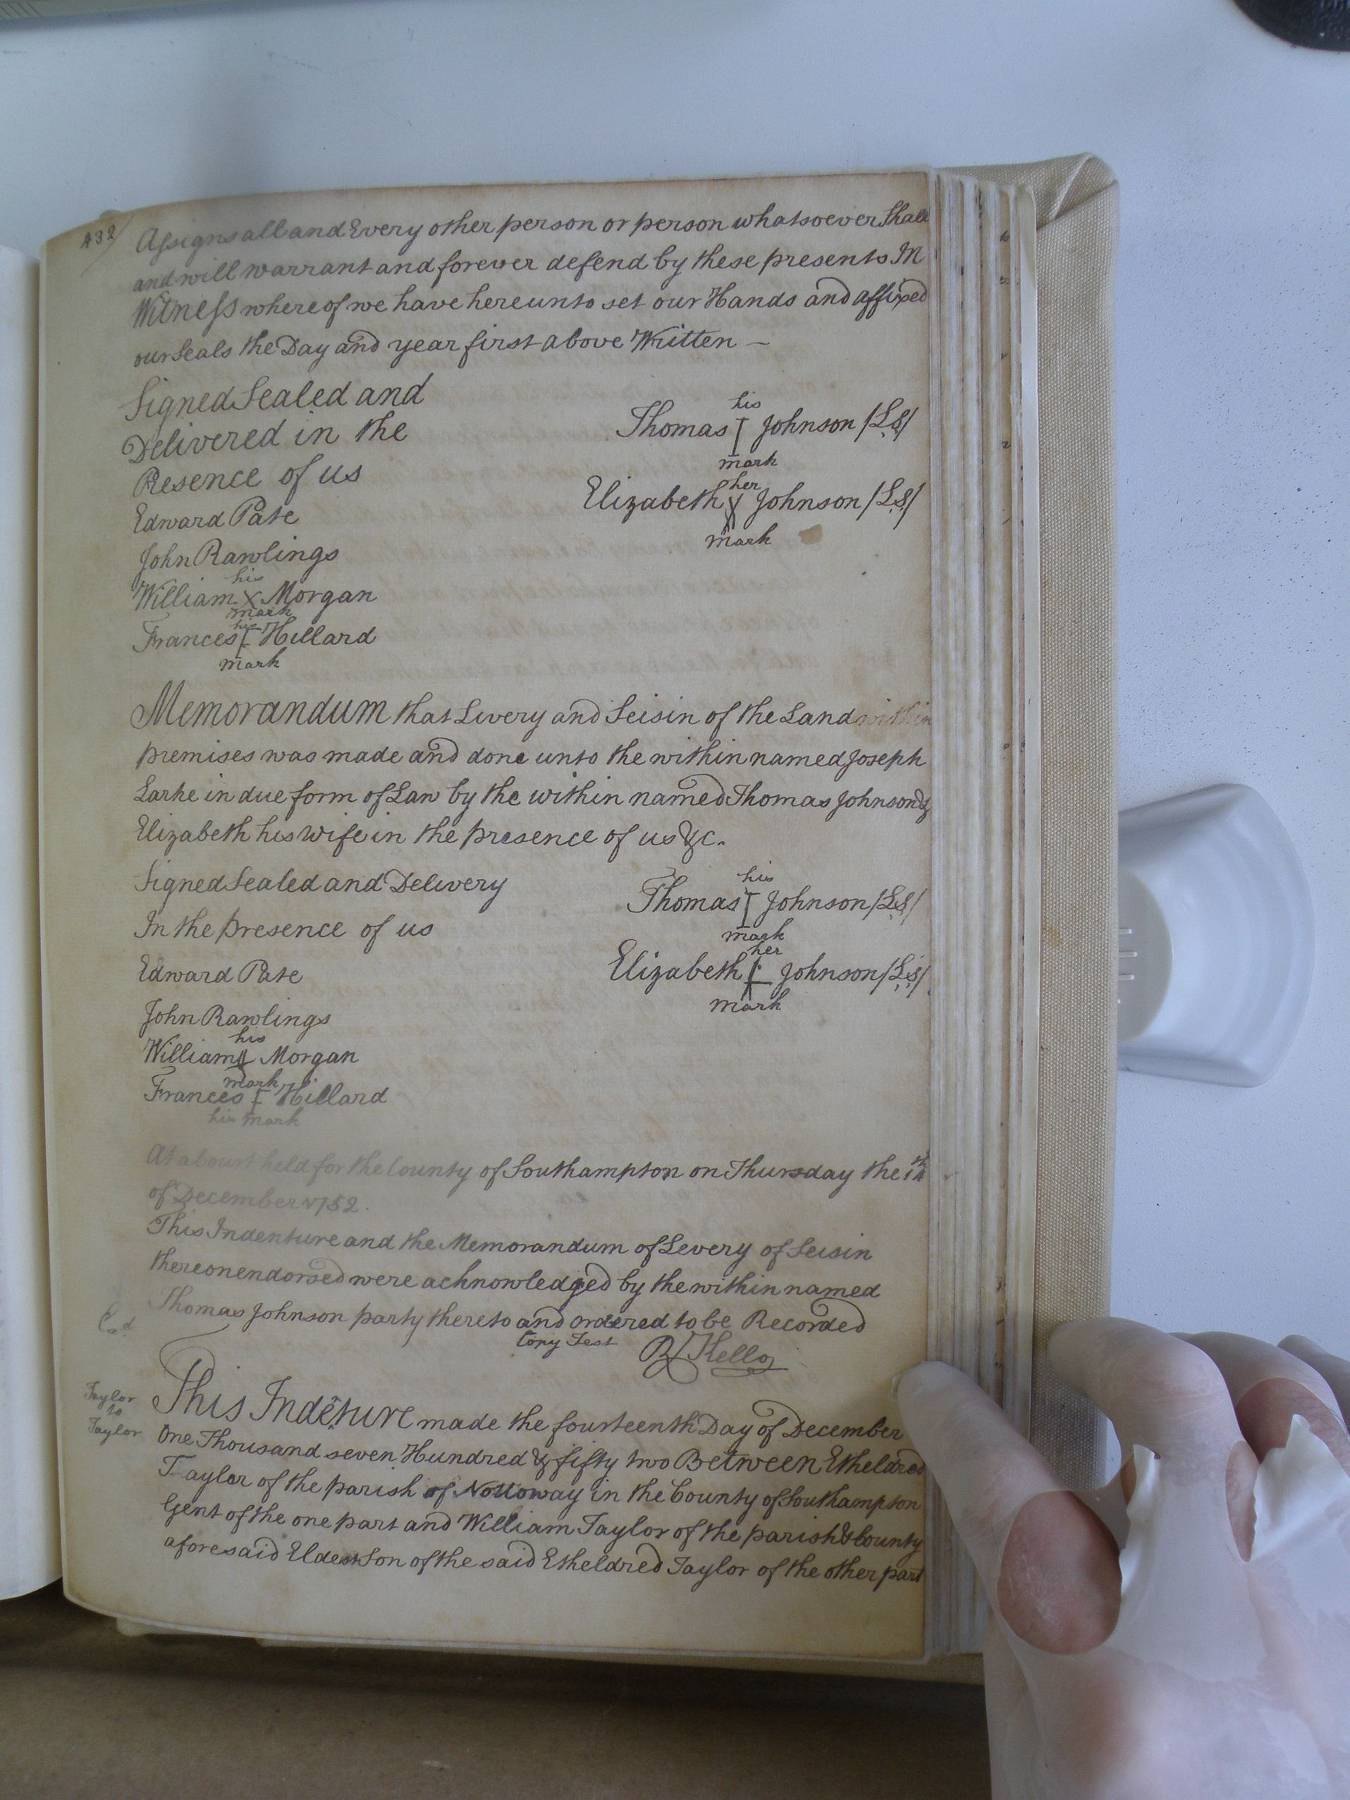 432
Assigns all and Every other person or person whatsoever Shall
and will warrant and forever defend by these presents In
Witness whereof we have hereunto set our Hands and affixed
our Seals the Day and year first above Written —
Signed Sealed and
Delivered in the
Presence of us
his
Thomas I Johnson /LS/
mark
her
Elizabeth Johnson /LS/
mark
Edward Pate
John Rawlings
his
William X Morgan
mark
his
Frances Hillard
mark
Memorandum that Livery and Seisin of the Land within
premises was made and done unto the within named Joseph
Larke in due form of Law by the within named Thomas Johnson &
Elizabeth his wife in the presence of us &c.
Signed Sealed and Delivery
In the presence of us
his
Thomas I Johnson /LS/
mark
her
Elizabeth Johnson /LS/
mark
Edward Pate
John Rawlings
his
William Morgan
mark
Frances Hillard
his mark
At a Court held for the County of Southampton on Thursday the 14th
of December 1752.
This Indenture and the Memorandum of Levery of Seisin
thereon endorsed were acknowledged by the within named
Thomas Johnson party thereto and ordered to be Recorded
Copy Test
R Kello
Exd
Taylor
to
Taylor
This Indēture made the fourteenth Day of December
One Thousand seven Hundred & fifty two Between Etheldred
Taylor of the parish of Nottoway in the County of Southampton
Gent of the one part and William Taylor of the parish & County
aforesaid Eldest Son of the said Etheldred Taylor of the other part